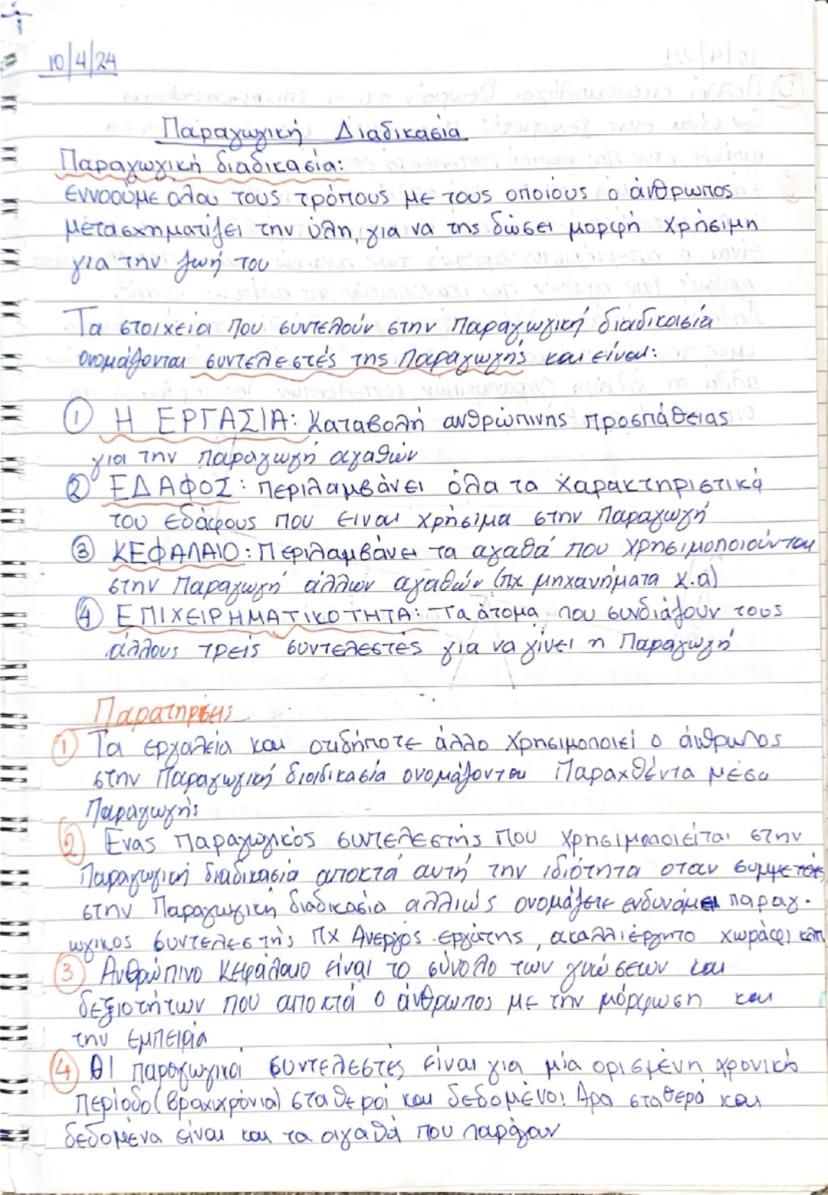 10/4/24
Παραγωγική Διαδικασία
Παραγωγική διαδικασία:
εννοούμε όλου τους τρόπους με τους οποίους ο άνθρωπος
μετασχηματίζει την ύλη, για να της δώσει μορφή χρήσιμη
για την ζωή του
Τα στοιχεία που συντελούν στην παραγωγική διαδικασία
ονομάζονται συντελεστές της παραγωγής και είναι:
① Η ΕΡΓΑΣΙΑ: Καταβολή ανθρώπινης προσπάθειας
για την παραγωγή αγαθών
② ΕΔΑΦΟΣ: Περιλαμβάνει όλα τα χαρακτηριστικά
του εδάφους που ειναι χρήσιμα στην παραγωγή
③ ΚΕΦΑΛΑΙΟ: Περιλαμβάνει τα αγαθά που χρησιμοποιούνται
στην παραγωγή άλλων αγαθών (πχ μηχανήματα κ.α)
④ ΕΠΙΧΕΙΡΗΜΑΤΙΚΟΤΗΤΑ: Τα άτομα που συνδιάζουν τους
άλλους τρείς συντελεστές για να γίνει η Παραγωγή
Παρατηρσεις
① Τα εργαλεία και οτιδήποτε άλλο χρησιμοποιεί ο άνθρωπος
στην παραγωγική διαδικασία ονομάζονται Παραχθέντα μέσα
παραγωγής
② Ενας παραγωγικός συντελεστής που χρησιμοποιείται στην
παραγωγική διαδικασία αποκτά αυτή την ιδιότητα οταν
στην παραγωγική διαδικασία αλλιώς ονομάζετε παραγ.
ωγικος συντελεστής πχ Ανεργός εργάτης, ακαλλιέργητο χωράφι κλπ
③ Ανθρώπινο κεφάλαιο είναι το σύνολο των γνώσεων και
δεξιοτήτων που αποκτά ο άνθρωπος με την μόρφωση και
την εμπειρία
④ ΟΙ παραγωγικοί συντελεστές είναι για μία ορισμένη χρονική
περίοδο (βραχυχρόνια) σταθεροί και δεδομένοι Αρα σταθερά και
δεδομένα είναι και τα αγαθά που παράγουν